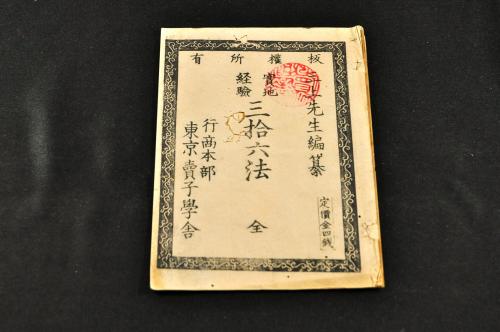 板權所有
先生編纂
實地
経驗
三拾六法 全
定價金四銭
行商本部
東京賣子學舎